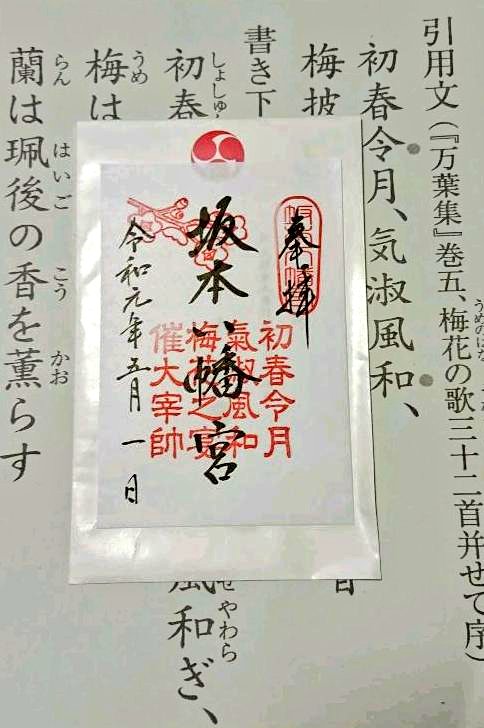 引用文(『万葉集』巻五、梅花の歌三十二首并せて序)
うめのはな
初春令月、気淑風和、
梅披
書き下
初春
しょしゅ
風和ぎ、
やわら
梅は
うめ
蘭は珮後の香を薫らす
らん
はいご
こう
かお
奉拝
坂本八幡宮
令和元年五月一日
初春令月
氣淑風和
梅花之宴
催大宰帥